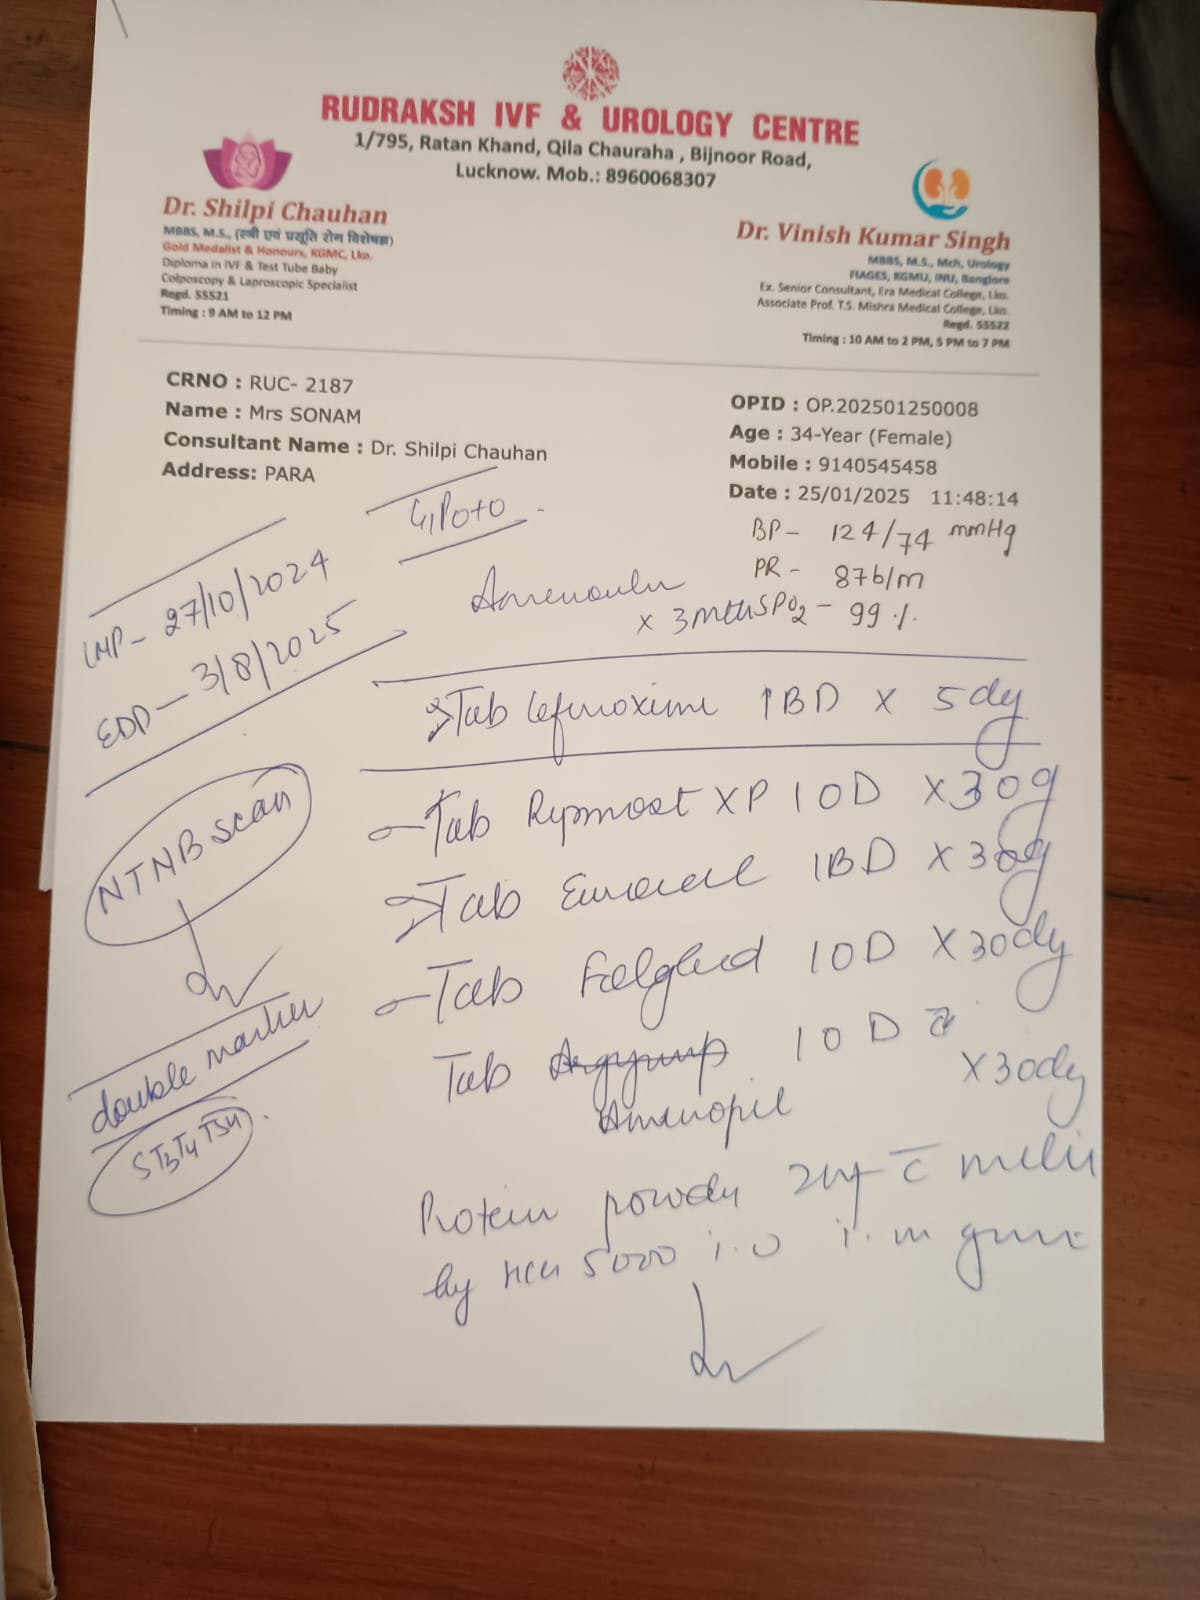 RUDRAKSH IVF & UROLOGY CENTRE
1/795, Ratan Khand, Qila Chauraha , Bijnoor Road,
Lucknow. Mob.: 8960068307
Dr. Shilpi Chauhan
MBBS, M.S., (स्त्री एवं प्रसूति रोग विशेषज्ञ)
Gold Medalist & Honours, KGMC, Lko.
Diploma in IVF & Test Tube Baby
Colposcopy & Laproscopic Specialist
Regd. 55521
Timing : 9 AM to 12 PM
Dr. Vinish Kumar Singh
MBBS, M.S., Mch, Urology
FIAGES, KGMU, INU, Banglore
Ex. Senior Consultant, Era Medical College, Lko.
Associate Prof. T.S. Mishra Medical College, Lko.
Regd. 55522
Timing : 10 AM to 2 PM, 5 PM to 7 PM
CRNO : RUC- 2187
Name : Mrs SONAM
Consultant Name : Dr. Shilpi Chauhan
Address: PARA
OPID : OP.202501250008
Age : 34-Year (Female)
Mobile : 9140545458
Date : 25/01/2025 11:48:14
BP - 124/74 mmHg
PR - 87b/m
SPO2 - 99 %
G1P0+0
x 3mth
LMP - 27/10/2024
EDD - 3/8/2025
NTNB scan
double marker
ST3T4TSH
Tab 1BD x 5dy
Tab XP 1OD x 30
Tab 1BD x 30
Tab 1OD x 30dy
Tab 1OD
x 30dy
Protein powder
HCG 5000 i.u i.m